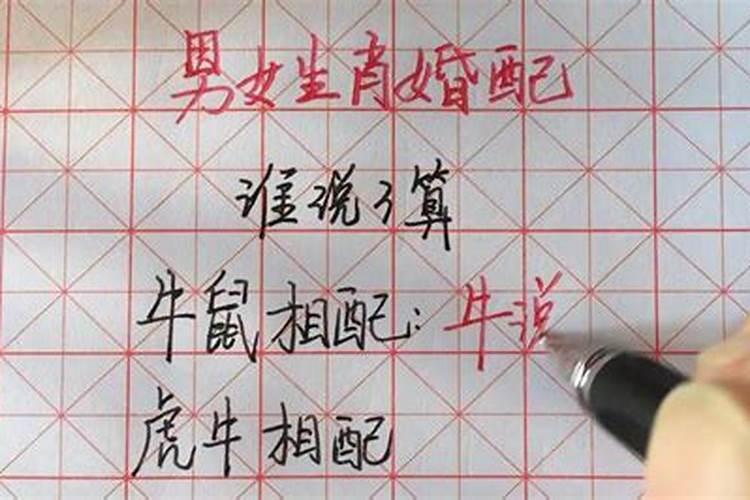 男女生肖婚配
谁说了算
牛鼠相配：牛说
虎牛相配